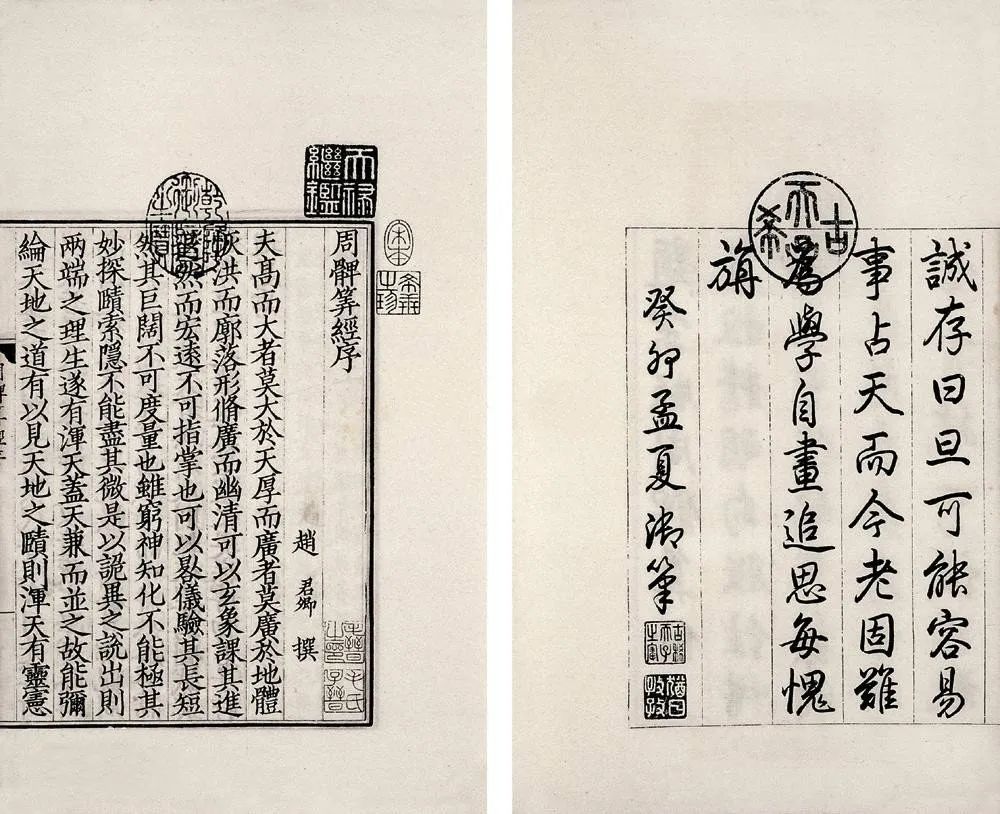 誠存曰旦可能容易
事占天而今老固難
爲學自畫追思每愧
旃
癸卯孟夏御筆
古希天子
猶日孜孜
天祿繼鑑
乾隆御覽之寶
宋本
希世之珍
周髀筭經序
趙君卿撰
毛晉之印
毛氏子晉
夫高而大者莫大於天厚而廣者莫廣於地體
恢洪而廓落形脩廣而幽清可以玄象課其進
退然而宏遠不可指掌也可以晷儀驗其長短
然其巨闊不可度量也雖窮神知化不能極其
妙探賾索隱不能盡其微是以詭異之說出則
兩端之理生遂有渾天蓋天兼而並之故能彌
綸天地之道有以見天地之賾則渾天有靈憲